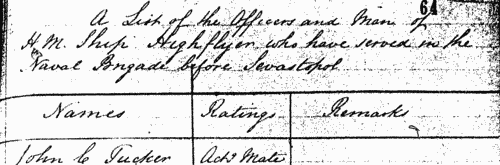 64
A List of the Officers and Men of
H.M. Ship Highflyer who have served in the
Naval Brigade before Sevastopol
Names Ratings Remarks
John C Tucker Actg Mate